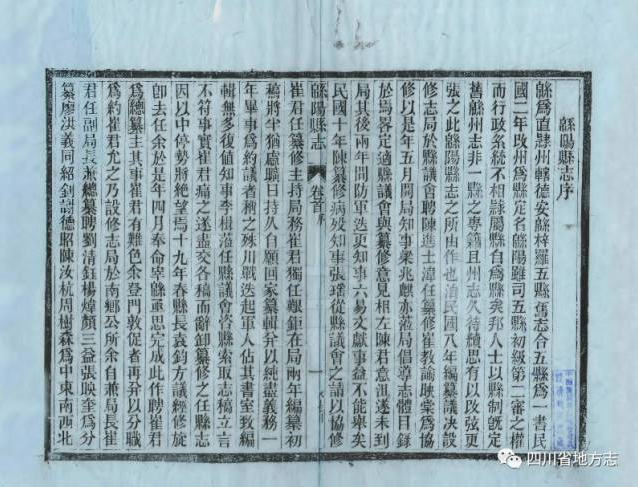 緜陽縣志序
緜為直隸州轄德安緜梓羅五縣舊志合五縣為一書民
國二年改州為縣定名緜陽雖司五縣初級第二審之權
而行政系統不相隸屬縣自為縣矣邦人士以縣制旣定
舊緜州志非一縣之專籍且州志久待續思有以改弦更
張之此緜陽縣志之所由作也洎民國八年編纂議決設
修志局於縣議會聘陳進士緯任纂修崔教諭映棠為協
修以是年五月開局知事梁兆麒亦蒞局倡導志體目錄
於焉畧定適縣議會與纂修意見相左陳君意沮遂未到
局其後兩年間防軍迭更知事六易文獻事益不能舉矣
民國十年陳纂修病歿知事張瑶從縣議會之請以協修
緜陽縣志 卷首 序 一
崔君任纂修主持局務崔君獨任艱鉅在局兩年編纂初
稿將半猶慮曠日持久自願回家纂輯弁以純盡義務一
年畢事為約議者稱之殊川戰迭起軍人佔其書室致編
輯無多復值知事李根滋任縣議會咨縣索取志稿立言
不符事實崔君痛之遂盡交各稿而辭卸纂修之任縣志
因以中停勢將絕望焉十九年春縣長袁鈞方議經修旋
卽去任余於是年四月奉命宰緜亟思完成此作聘崔君
為總纂主其事崔君有難色余登門敦促者再弁以分職
為約崔君允之乃設修志局於南鄉公所余自兼局長崔
君任副局長兼總纂聘劉清鈺楊煒顏三益張映奎為分
纂廖洪義同紹釗謝德昭陳汝杭周樹森為中東南西北
四川省地方志